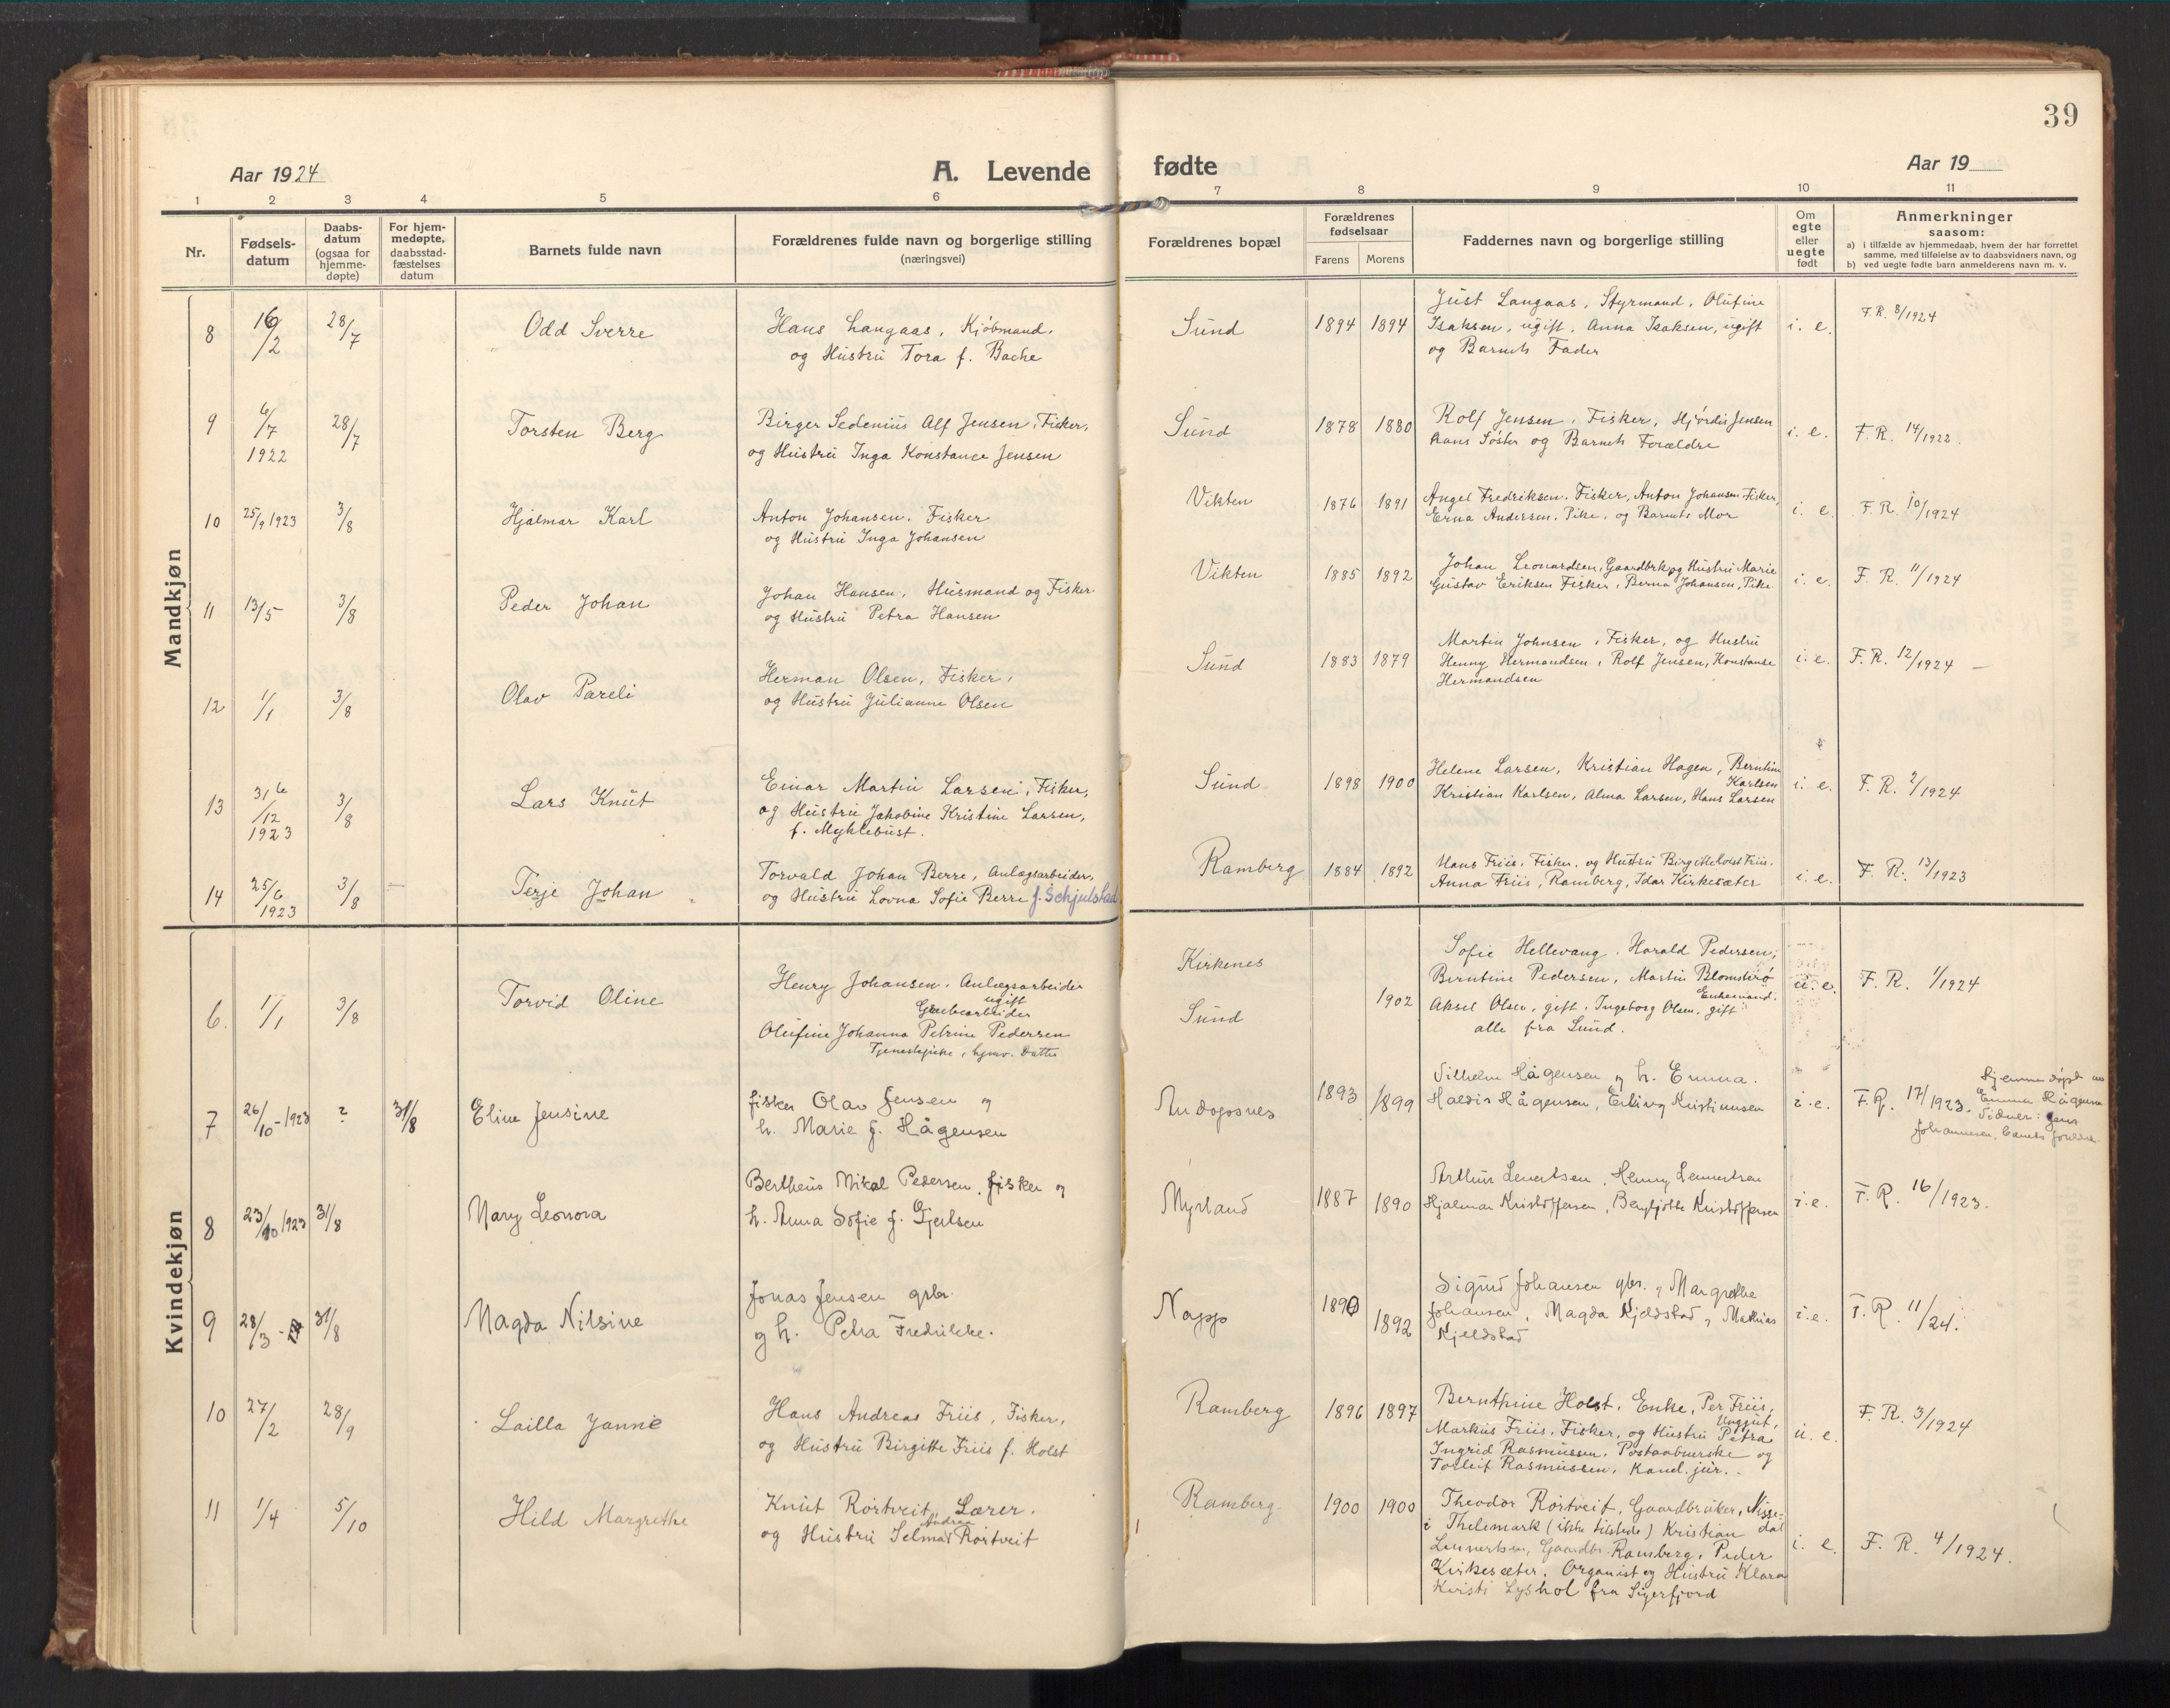 39
Aar 1924
A. Levende fødte
Aar 19
1 2 3 4 5 6 7 8 9 10 11
Nr.
Fødsels-
datum
Daabs-
datum
(ogsaa for
hjemme-
døpte)
For hjem-
medøpte,
daabsstad-
fæstelses
datum
Barnets fulde navn
Forældrenes fulde navn og borgerlige stilling
(næringsvei)
Forældrenes bopæl
Forældrenes
fødselsaar
Farens Morens
Faddernes navn og borgerlige stilling
Om
egte
eller
uegte
født
Anmerkninger
saasom:
a) i tilfælde av hjemmedaab, hvem der har forrettet
samme, med tilføielse av to daabsvidners navn, og
b) ved uegte fødte barn anmelderens navn m. v.
Mandkjøn
8 16/2 28/7 Odd Sverre
Hans Langaas, Kjöbmand,
og Hustru Tora f. Bache
Sund 1894 1894
Just Langaas, Styrmand, Olufine
Isaksen, ugift, Anna Isaksen, ugift
og Barnets Fader
i. e. F.R. 8/1924
9 6/7 1922 28/7 Torsten Berg
Birger Sedenius Alf Jensen, Fisker,
og Hustru Inga Konstance Jensen
Sund 1878 1880
Rolf Jensen, Fisker, Hjördis Jensen
hans Söster og Barnets Forældre
i. e. F.R. 14/1922.
10 25/9 1923 3/8 Hjalmar Karl
Anton Johansen, Fisker
og Hustru Inga Johansen
Vikten 1876 1891
Angel Fredriksen, Fisker, Anton Johansen Fisker,
Erna Andersen, Pike, og Barnets Mor
i. e. F.R. 10/1924
11 13/5 3/8 Peder Johan
Johan Hansen, Husmand og Fisker
og Hustru Petra Hansen
Vikten 1885 1892
Johan Leonardsen, Gaardbrk og Hustru Marie
Gustav Eriksen Fisker, Berna Johansen, Pike
i. e. F. R. 11/1924
12 1/1 3/8 Olav Pareli
Herman Olsen, Fisker,
og Hustru Julianne Olsen
Sund 1883 1879
Martin Johnsen, Fisker, og Hustru
Henny Hermandsen, Rolf Jensen, Konstanse
Hermandsen
i. e. F.R. 12/1924 —
13 31/12 1923 3/8 Lars Knut
Einar Martin Larsen, Fisker,
og Hustru Jakobine Kristine Larsen,
f. Myklebust.
Sund 1898 1900
Helene Larsen, Kristian Hagen, Berntine
Karlsen
Kristian Karlsen, Alma Larsen, Hans Larsen
i. e. F. R. 2/1924
14 25/6 1923 3/8 — Terje Johan
Torvald Johan Berre, Anlægsarbeider,
og Hustru Lovna Sofie Berre f. Schjulstad
Ramberg 1884 1892
Hans Friis, Fisker, og Hustru Birgitte Holst Friis,
Anna Friis, Ramberg, Idar Kirkesæter
i. e. F. R. 13/1923
Kvindekjøn
6. 1/1 3/8 Torvid Oline
Henry Johansen, Anlægsarbeider
ugift
Grubearbeider
Olufine Johanna Petrine Pedersen
Tjenestepike, hjmv. Datter
Kirkenes
Sund 1902
Sofie Hellevang, Harald Pedersen,
Berntine Pedersen, Martin Blomsterö
Enkemand.
Aksel Olsen, gift, Ingeborg Olsen, gift
alle fra Sund.
u. e. F. R. 1/1924
7 26/10-1923 ? 31/8 Eline Jensine
fisker Olav Jensen og
h. Marie f. Hågensen
Andopsnes 1893 1899
Vilhelm Hågensen og h. Emma.
Haldis Hågensen, Erling Kristiansen
i. e. F.R. 17/1923.
Hjemmedøpt av
Emma Hågensen
Vidner: Jens
Johannesen, barnets foreldre.
8 23/10 1923 31/8 Mary Leonora
Bertheus Mikal Pedersen, fisker og
h. Anna Sofie f. Gjertsen
Myrland 1887 1890
Arthur Lenertsen, Henny Lennertsen
Hjalmar Kristoffersen, Bergljotte Kristoffersen
i. e. F. R. 16/1923.
9 28/3 31/8 Magda Nilsine
Jonas Jensen gbr.
og h. Petra Fredrikke.
Napp 1890 1892
Sigurd Johansen gbr. og Margrethe
Johansen, Magda Kjeldstad og Mathias
Kjeldstad
i. e. F. R. 11/24.
10 27/2 28/9 Lailla Jannie
Hans Andreas Friis, Fisker,
og Hustru Birgitte Friis f. Holst
Ramberg 1896 1897
Bernthine Holst, Enke, Per Friis,
Unggut,
Markus Friis, Fisker, og Hustru Petra
Ingrid Rasmussen, Postaabnerske og
Torleif Rasmussen, Kand. jur.
u. e. F. R. 3/1924
11 1/4 5/10 Hild Margrethe
Knut Rörtveit, Lærer.
Andrea
og Hustru Selma Rörtveit
Ramberg 1900 1900
Theodor Rörtveit, Gaardbruker, Nisse-
dal
i Thelemark (ikke tilstede) Kristian
Lennertsen, Gaardbr. Ramberg, Peder
Kirkesæter, Organist og Hustru Klara
Kristi Lyshol fra Sigerfjord
i. e. F. R. 4/1924.